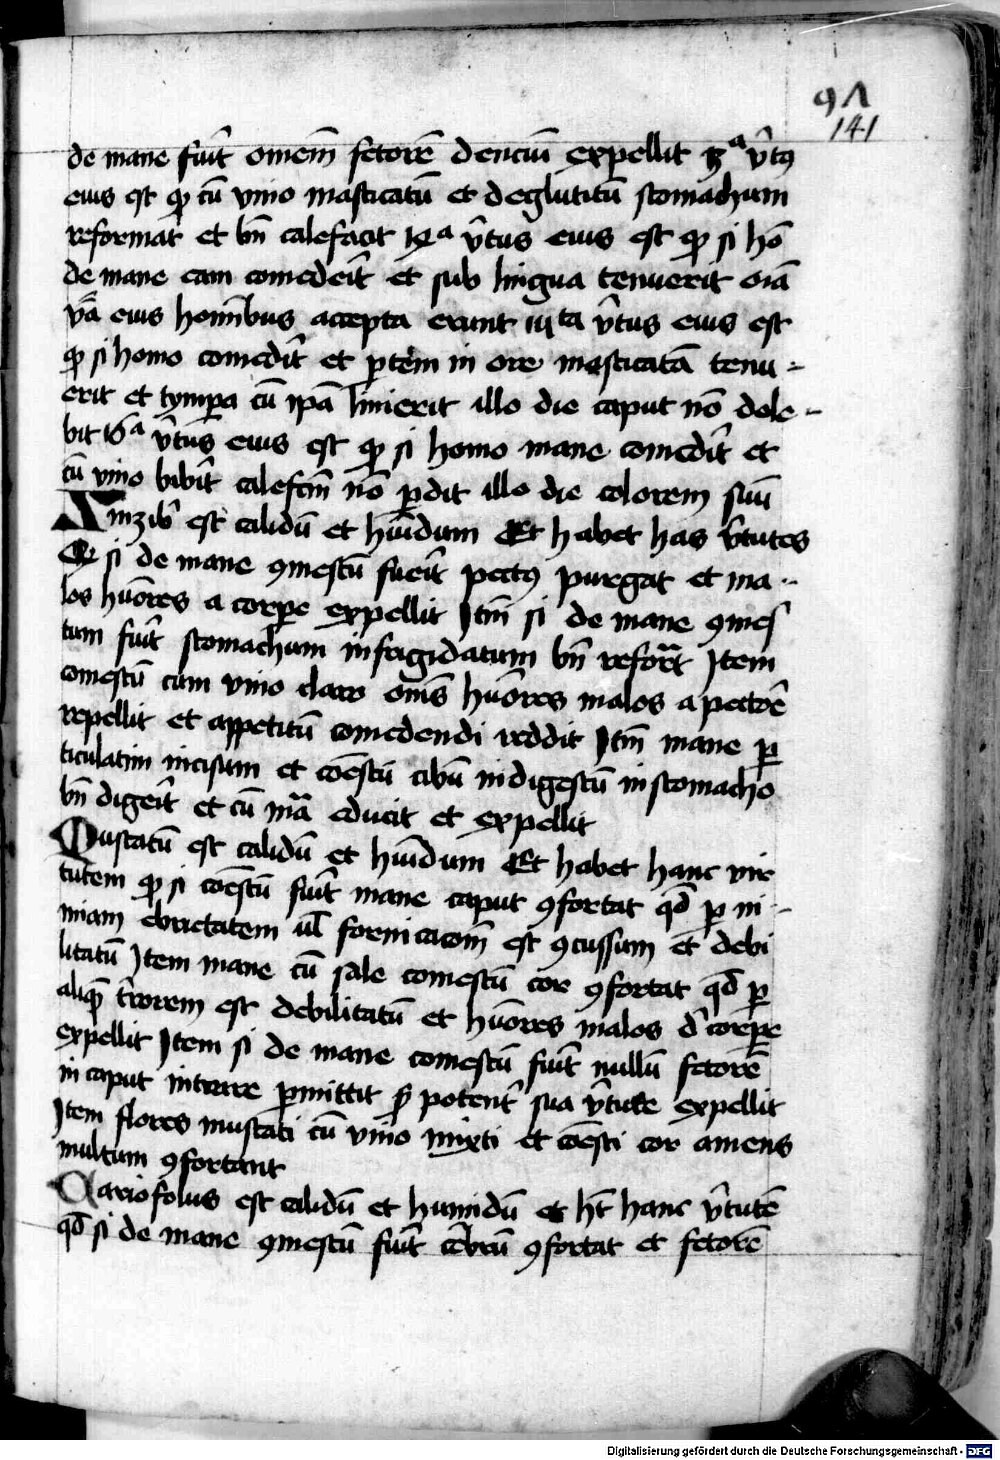 91
141
de mane fuit̄ omēm fetorē denciū expellit 3ᵃ v̄tꝯ
eius est ꝙ cū vino masticatū et deglutitū stomachum
reformat et bn̄ calefacit 4ᵃ v̄tus eius est ꝙ si hō
de mane eam comedeit̄ et sub lingua tenuerit oīa
v̄ba eius homībus accepta erunt vᵗᵃ v̄tus eius est
ꝙ si homo comedit̄ et ꝑtem in ore masticatā tenu-
erit et tympa cū ipā linierit illo die caput nō dole-
bit 6ᵃ v̄tus eius est ꝙ si homo mane comedit̄ et
cū vino bibit̄ calefcīn nō ꝑdit illo die colorem suū
Zinzib̄ est calidū et hūidum Et habet has v̄tutes
Qꝫ si de mane ꝯmestū fueit̄ pectꝯ purgat et ma-
los hūores a corpe expellit Itm̄ si de mane ꝯmes
tum fuit̄ stomachum infrigidatum bn̄ reformᵃt Item
comestū cum vino claro om̄s hūores malos a pectoē
repellit et appetitū comedendi reddit Itm̄ mane ꝑ
ticulatim incisum et coēstū cibū indigestū in stomacho
bn̄ digeit̄ et cū mᵃ̄ educit et expellit
Mustatū est calidū et hūidum Et habet hanc vir
tutem ꝙ si coēstū fuit̄ mane caput ꝯfortat qd̄ ꝑ ni-
miam ebrietatem ul̄ fornicacōm est ꝯcussum et debi
litatū Item mane cū sale comestū cor ꝯfortat qd̄ ꝑ
aliqē t̄rorem est debilitatū et hūores malos d̄ corpe
expellit Item si de mane comestū fuit̄ nullū fetorē
in caput intrare ꝑmittit s̄ potent̄ sua v̄tute expellit
Item flores mustati cū vino mixti et coēsti cor amens
multum ꝯfortant
Gariofolus est calidū et humidū et ht̄ hanc v̄tutē
qd̄ si de mane ꝯmestū fuit̄ cēbrū ꝯfortat et fetorē
Digitalisierung gefördert durch die Deutsche Forschungsgemeinschaft - DFG